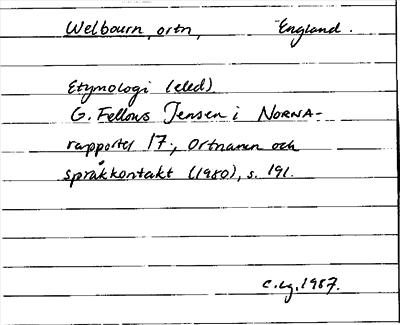 Welbourn, ortn, England.
Etymologi (eled)
G. Fellows Jensen i NORNA-
rapporter 17, Ortnamn och
språkkontakt (1980), s. 191.
1987.